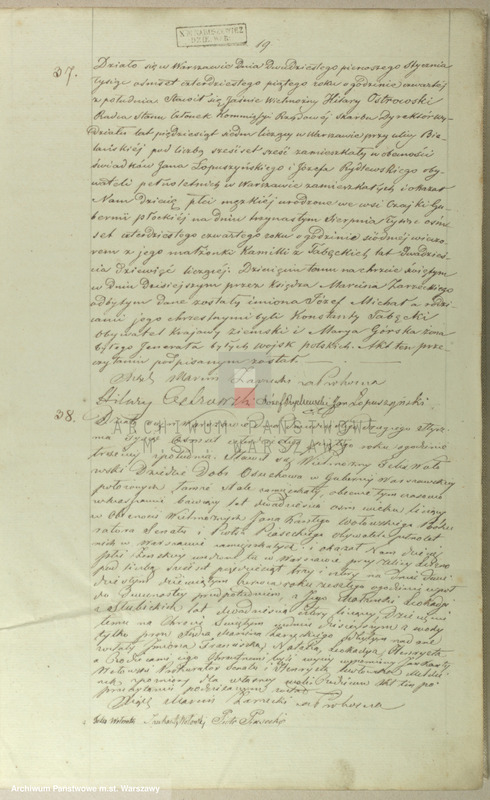 19.
37.
Działo się w Warszawie dnia dwudziestego pierwszego Stycznia
tysiąc ośmset czterdziestego piątego roku o godzinie czwartej
z południa. Stawił się Jaśnie Wielmożny Hilary Ostrowski
Radca Stanu Członek Kommissyi Rządowéj Skarbu Dyrektor wy-
działu lat pięćdziesiąt siedm liczący w Warszawie przy ulicy Bie-
lańskiéj pod liczbą sześćset sześć zamieszkały w obecności
świadków Jana Łopuszyńskiego i Józefa Rydlewskiego oby-
wateli pełnoletnich w Warszawie zamieszkałych i okazał
Nam dziecię płci męzkiéj urodzone we wsi Czajki Gu-
bernii Płockiéj na dniu trzynastym Sierpnia tysiąc ośm-
set czterdziestego czwartego roku o godzinie siódméj wieczo-
rem z jego małżonki Kamilli z Tabęckich lat dwadzieś-
cia dziewięć liczącéj. Dziecięciu temu na chrzcie świętym
w dniu dzisiejszym przez Księdza Marcina Zarzeckiego
odbytym dane zostały imiona Józef Michał a rodzi-
cami jego chrzestnymi byli Konstanty Tabęcki
Obywatel Krajowy ziemski i Marya Górska żona
byłego Jenerała byłych wojsk polskich. Akt ten prze-
czytany podpisanym został
Xiądz Marcin Zarzecki
Hilary Ostrowski Józef Rydlewski Jan Łopuszyński
38.
Działo się w Warszawie dnia dwudziestego pierwszego Stycz-
nia tysiąc ośmset czterdziestego piątego roku o godzinie
trzeciéj z południa. Stawił się Wielmożny Felix Woło-
wski Dziedzic Dóbr Osuchowa w Gubernii Warszawskiéj
położonych tamże stale zamieszkały, obecnie tymczasowo
w Warszawie bawiący lat dwadzieścia ośm wieku liczący
w Obecności Wielmożnych Jana Kantego Wołowskiego
Senatu i Piotra Obywateli pełnolet-
nich w Warszawie zamieszkałych i okazał Nam dziecię
płci żeńskiéj urodzone tu w Warszawie przy ulicy Leszno
pod liczbą sześćset pięćdziesiąt trzy na dniu dwu-
dziestym dziewiątym Czerwca roku zeszłego o godzinie wpół
do dwunastéj przed południem, z Jego Małżonki Leokadyi
z lat dwadzieścia cztery liczącéj. Dziecięciu
temu na Chrzcie Świętym w dniu dzisiejszym z wody
tylko przez Xiędza Marcina Zarzeckiego odbytym nadane
zostały Imiona Franciszka, Natalia, Leokadya, Henryeta
a Rodzicami jego Chrzestnymi byli wyżéj wspomniony Jan Kanty
Wołowski Senatu i Henryeta
Akt ten po
przeczytaniu podpisanym został
Xiądz Marcin Zarzecki
Felix Wołowski Jan Kanty Wołowski Piotr
ARCHIWUM PAŃSTWOWE
M. ST. WARSZAWY
Archiwum Państwowe m.st. Warszawy